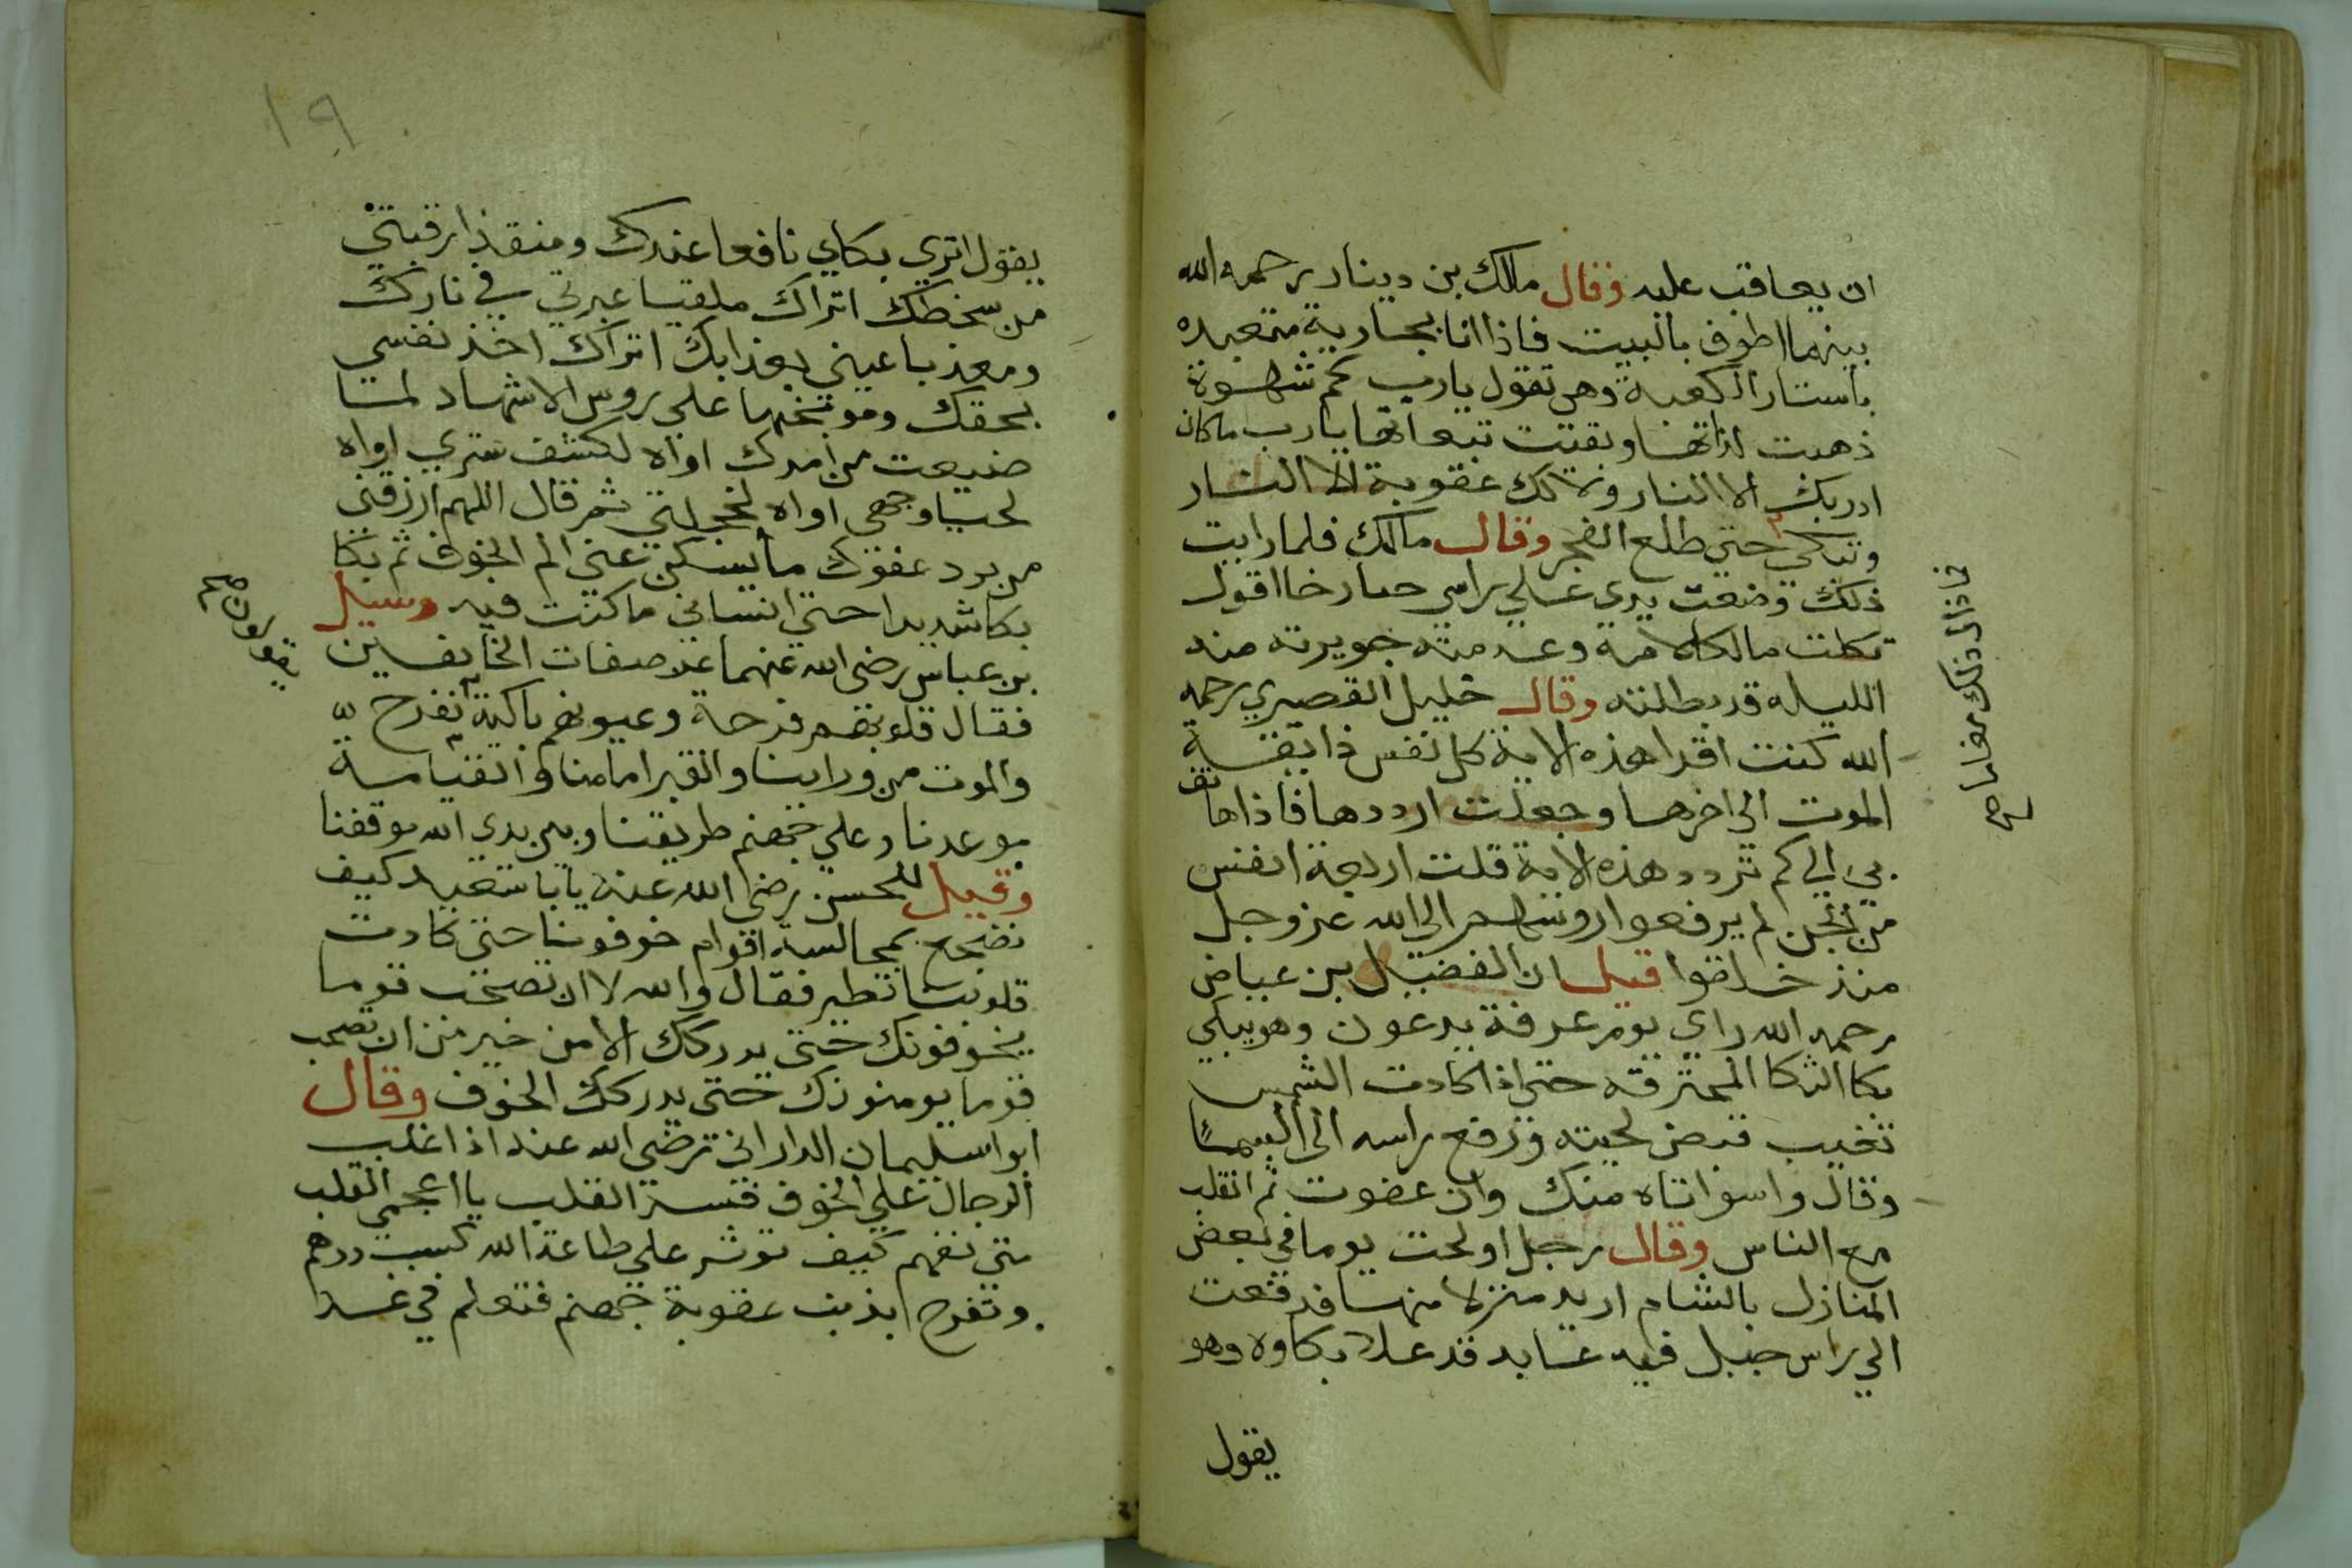 ان يعاقب عليه وقال ملك بن دينار رحمه الله
بينهما اطوف بالبيت فاذا انا بجارية متعبده
باستار الكعبة وهي تقول يارب كم شهوة
ذهبت لذاتها وبقيت تبعاتها يارب ماكان
ادبك الا النار ولا لك عقوبة الا النار
وتبكي حتى طلع الفجر وقال مالك فلما رايت
ذلك وضعت يدي علي راسي صارخا اقول
ثكلت مالكا امه وعدمته جويرته منه
الليله قد بطلته وقال خليل القصيري رحمه
الله كنت اقرا هذه الاية كل نفس ذايقة
الموت الى اخرها وجعلت ارددها فاذا هاتف
بي الي كم تردد هذه الاية قلت اربعة انفس
من الجن لم يرفعوا روسهم الى الله عز وجل
منذ خلقوا قيل ان الفضيل بن عياض
رحمه الله راي يوم عرفة يدعون وهو يبكي
بكا الثكلا المحترقه حتى اذا كادت الشمس
تغيب قبض لحيته ورفع راسه الى السما
وقال واسواتاه منك وان عفوت ثم انقلب
مع الناس وقال رجل اولحت يوما في بعض
المنازل بالشام اريد منزلا منها فدفعت
الي راس جبل فيه عابد قد علا بكاوه وهو
يقول
فمازال ذلك مقامها صح
١٩
يقول اتري بكاي نافعا عندك ومنقذا رقبتي
من سخطك اتراك ملقيا عبرتي في نارك
ومعذبا عيني بعذابك اتراك اخذ نفسي
بحقك وموبخها على روس الاشهاد لما
ضيعت من امرك اواه لكشف ستري اواه
لحيا وجهي اواه لخجلتي ثم قال اللهم ارزقني
من برد عفوك ما يسكن عني الم الخوف ثم بكا
بكا شديدا حتى انساني ما كنت فيه وسيل
بن عباس رضي الله عنهما عن صفات الخايفين
فقال قلوبهم قرحة وعيونهم باكية نفرح
والموت من وراينا والقبر امامنا والقيامة
موعدنا وعلي جهنم طريقنا وبين يدي الله موقفنا
وقيل للحسن رضي الله عنه يابا سعيد كيف
نضع بمجالسة اقوام خوفونا حتى كادت
قلوبنا تطير فقال والله لا ان تصحب قوما
يخوفونك حتى يدركك الامن خير من ان تصحب
قوما يومنونك حتى يدركك الخوف وقال
ابوا سليمان الداراني رضي الله عنه اذا غلب
الرجال علي الخوف فسد القلب يا اعجمي القلب
متى تفهم كيف توثر على طاعة الله كسب درهم
وتفرح بذنب عقوبة جهنم فتعلم في غد
يقولون صح